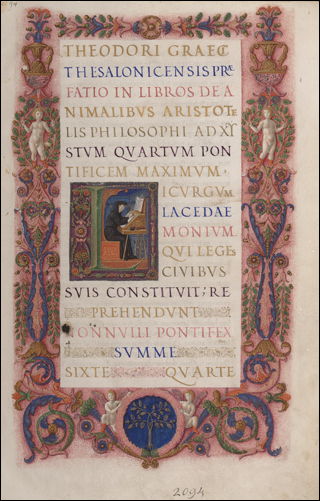 THEODORI GRAECI
THESALONICENSIS PRÆ
FATIO IN LIBROS DE A
NIMALIBUS ARISTOTE
LIS PHILOSOPHI AD XY
STUM QUARTUM PON
TIFICEM MAXIMUM.
L ICURGUM
LACEDAE
MONIUM
QUI LEGES
CIVIBUS
SUIS CONSTITUIT; RE
PREHENDUNT
NONNULLI PONTIFEX
SUMME
SIXTE QUARTE
2094